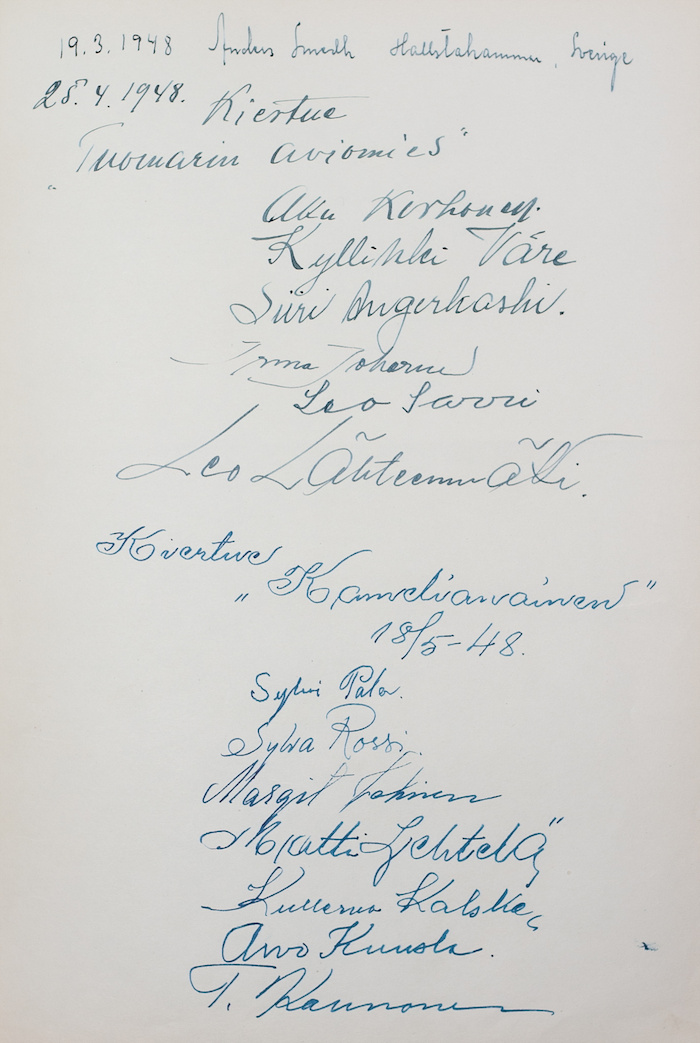 19.3.1948 Anders Smedh Hallstahammar, Sverige
25.4.1948. Kiertue
"Tuomarin aviomies"
Aku Korhonen.
Kyllikki Väre
Siiri Angerkoski.
Irma
Leo
Leo Lähteenmäki.
Kiertue
"Kamelianainen"
18/5-48.
Sylvi Palo.
Sylva Rossi.
Margit
Matti Lehtelä
Kullervo Kalske
Arvo Kuusla.
T. Kaunonen